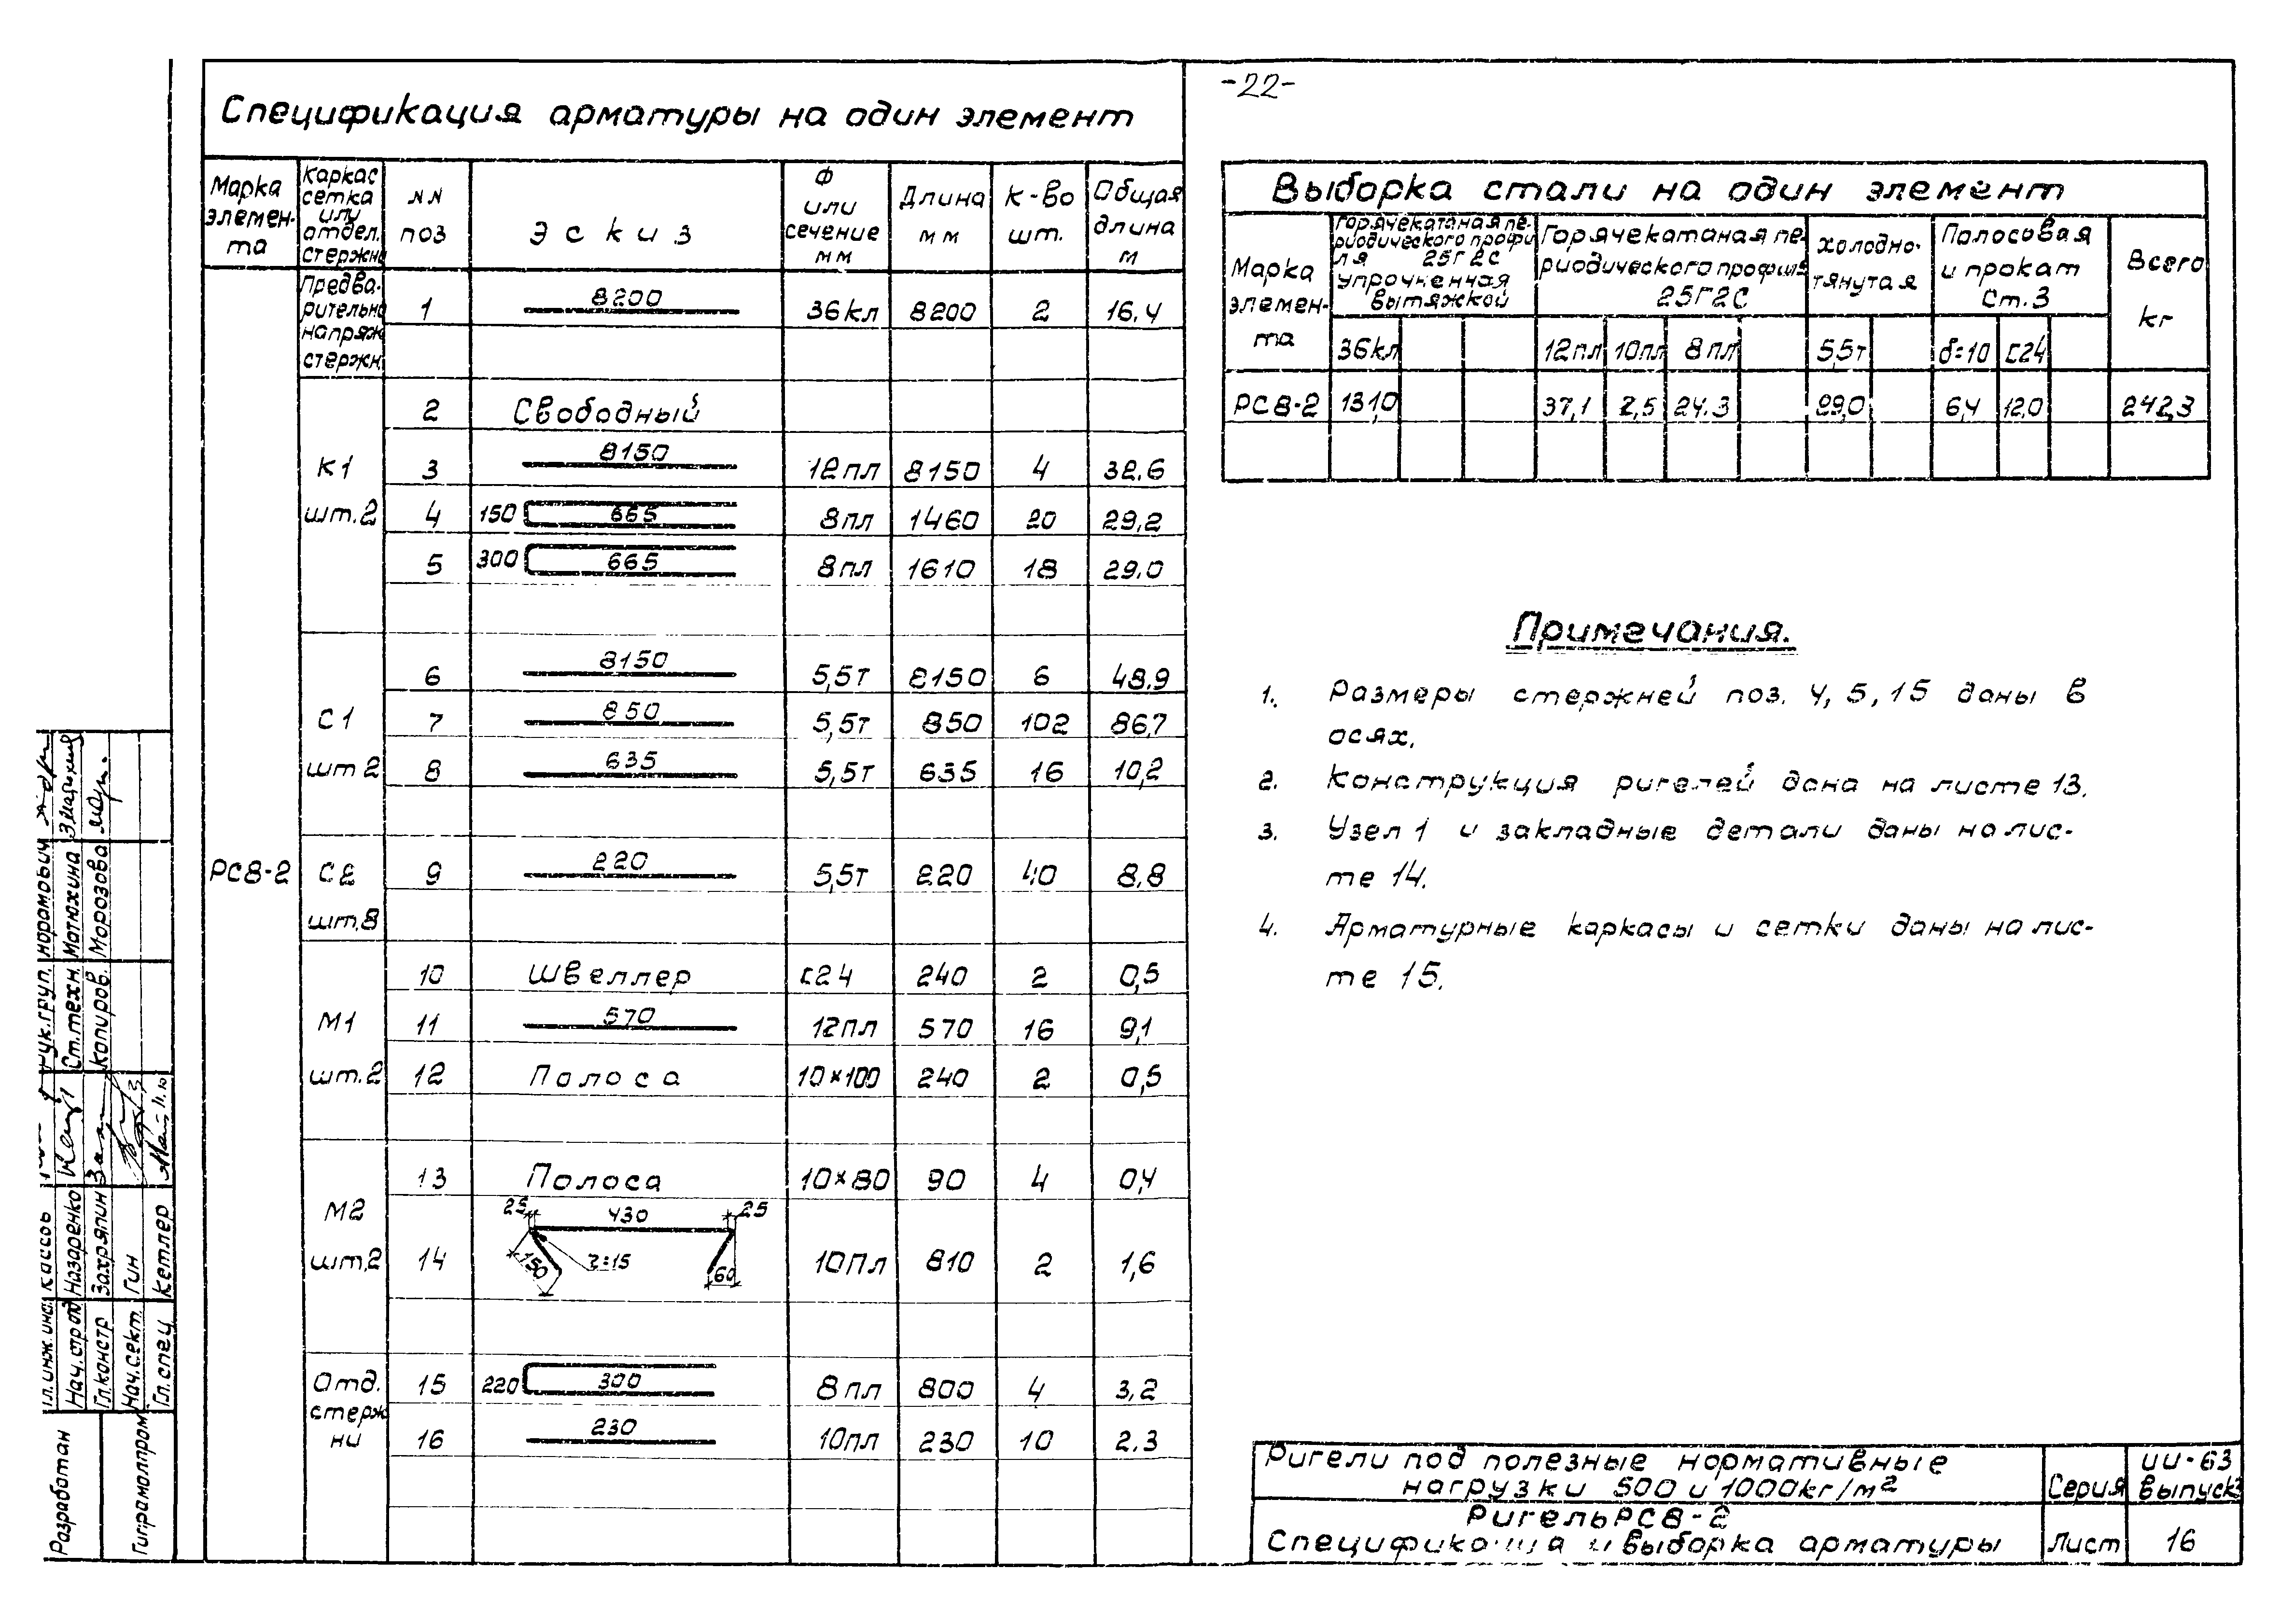 -22-
Спецификация арматуры на один элемент
Марка элемен- та | Каркас сетка или отдел. стержни | NN поз | Эскиз | Ф или сечение мм | Длина мм | К-во шт. | Общая длина м
РС8-2
Предва- рительно напряж. стержн.
1 | 8200 | 36кл | 8200 | 2 | 16.4
К1 шт.2
2 | Свободный
3 | 8150 | 12пл | 8150 | 4 | 32.6
4 | 150 665 | 8пл | 1460 | 20 | 29.2
5 | 300 665 | 8пл | 1610 | 18 | 29.0
С1 шт 2
6 | 8150 | 5,5т | 8150 | 6 | 48.9
7 | 850 | 5,5т | 850 | 102 | 86,7
8 | 635 | 5,5т | 635 | 16 | 10,2
С2 шт.8
9 | 220 | 5,5т | 220 | 40 | 8.8
М1 шт.2
10 | Швеллер | С24 | 240 | 2 | 0,5
11 | 570 | 12пл | 570 | 16 | 9,1
12 | Полоса | 10×100 | 240 | 2 | 0,5
М2 шт.2
13 | Полоса | 10×80 | 90 | 4 | 0,4
14 | 25 430 25 150 r=15 60 | 10пл | 810 | 2 | 1,6
Отд. стерж ни
15 | 220 300 | 8пл | 800 | 4 | 3,2
16 | 230 | 10пл | 230 | 10 | 2.3
Выборка стали на один элемент
Марка элемен- та | Горячекатаная пе- риодического профи ля 25Г2С упрочненная вытяжкой | Горячекатаная пе- риодического профиля 25Г2С | Холодно- тянутая | Полосовая и прокат Ст.3 | Всего кг
36кл | 12пл | 10пл | 8пл | 5,5т | δ=10 | С24
РС8-2 | 131,0 | 37,1 | 2,5 | 24.3 | 29,0 | 6,4 | 12,0 | 242,3
Примечания.
1. Размеры стержней поз. 4, 5, 15 даны в
осях.
2. Конструкция ригелей дана на листе 13.
3. Узел 1 и закладные детали даны на лис-
те 14.
4. Арматурные каркасы и сетки даны на лис-
те 15.
Ригели под полезные нормативные
нагрузки 500 и 1000кг/м²
Серия
ИИ-63
выпуск3
Ригель РС8-2
Спецификация и выборка арматуры
Лист
16
Ст.техн. Матюхина
Копиров. Морозова
Нач. отд Назаренко
Гл.констр Захряпин
Нач.сект. Гин
Гл.спец Кетлер
Разработан
Гипрамолпром